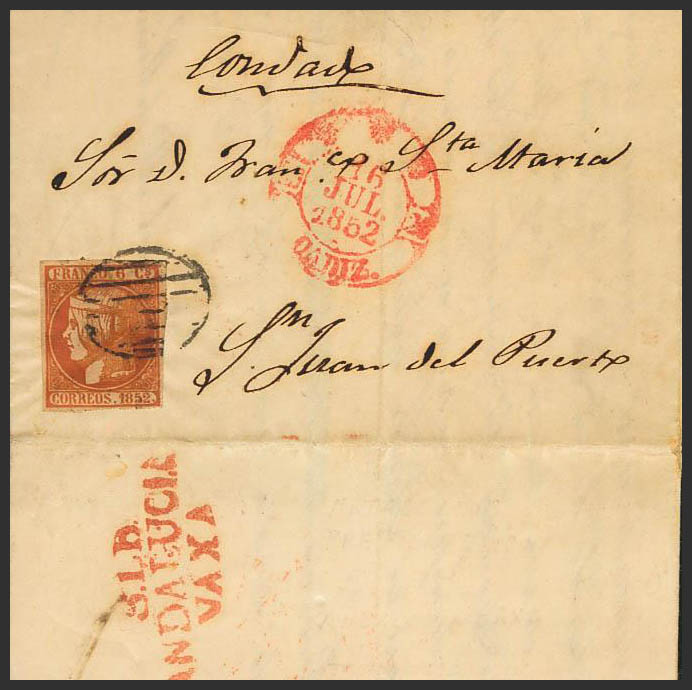 Condado
Sor. D. Franco. Sta Maria
16
JUL.
1852
CADIZ.
FRANCO. 6 Cs
CORREOS. 1852.
Sn Juan del Puerto
S.I.R.
ANDALUCIA
VAXA